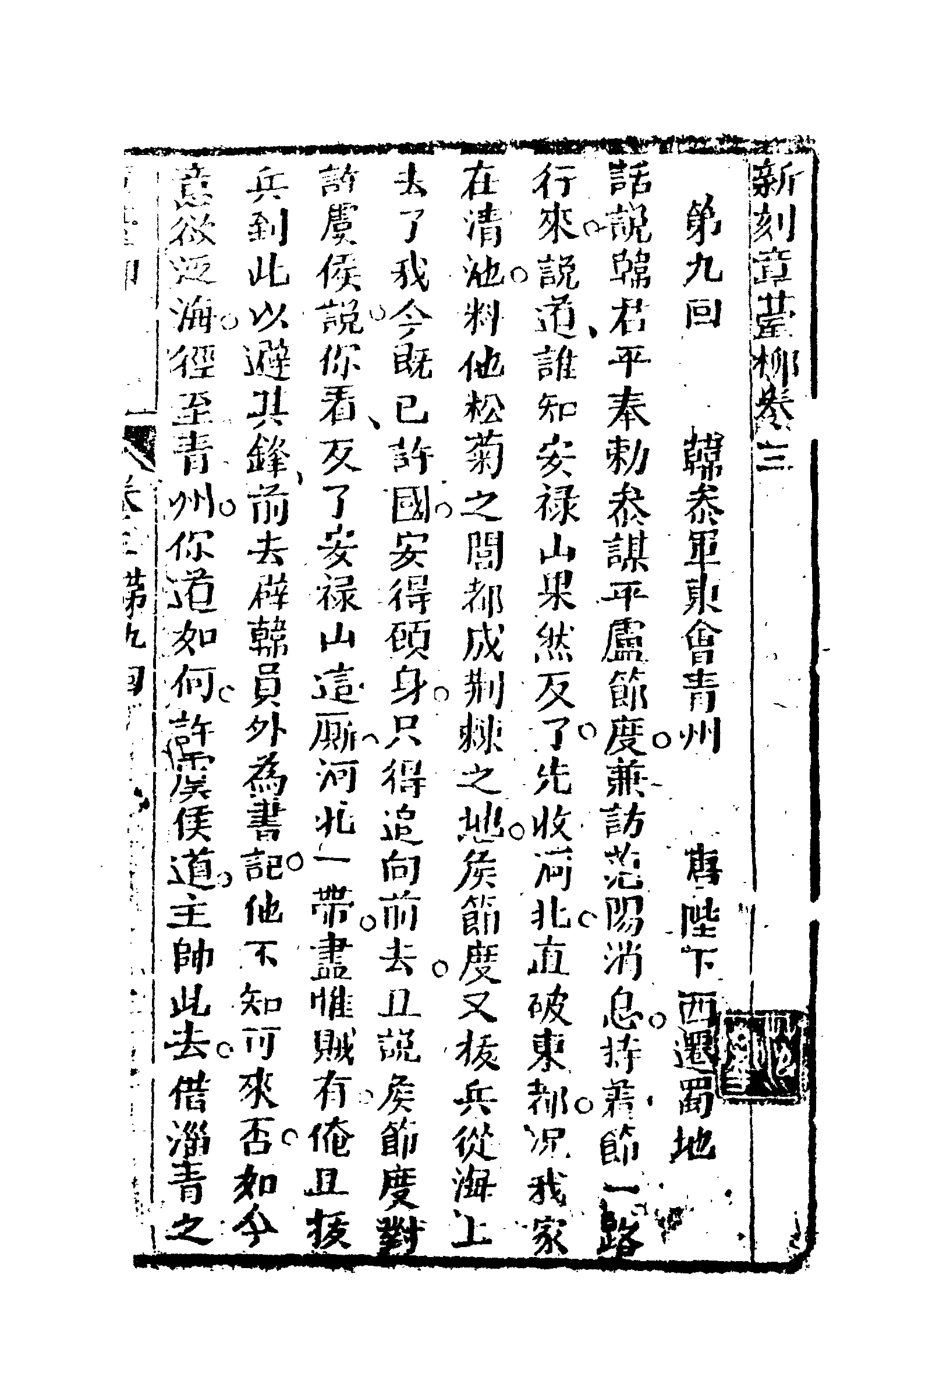 新刻章臺柳卷三
第九回　韓叅軍東會青州　唐陛下西還蜀地
話說韓君平奉勅叅謀平盧節度○兼訪范陽消息○持着節一路
行來○説道、誰知安禄山果然反了○先收河北○直破東都○况我家
在清池○料他松菊之間都成荆棘之地○侯節度又拔兵從海上
去了我今既已許國○安得頋身○只得追向前去○且說侯節度對
許虞侯說○你看、反了安禄山這厮○河北一帶○盡惟賊有○俺且拔
兵到此以避其鋒、前去辟韓員外為書記○他不知可來否○如今
意欲泛海○徑至青州○你道如何○許虞侯道○主帥此去○借淄青之
卷三　第九回